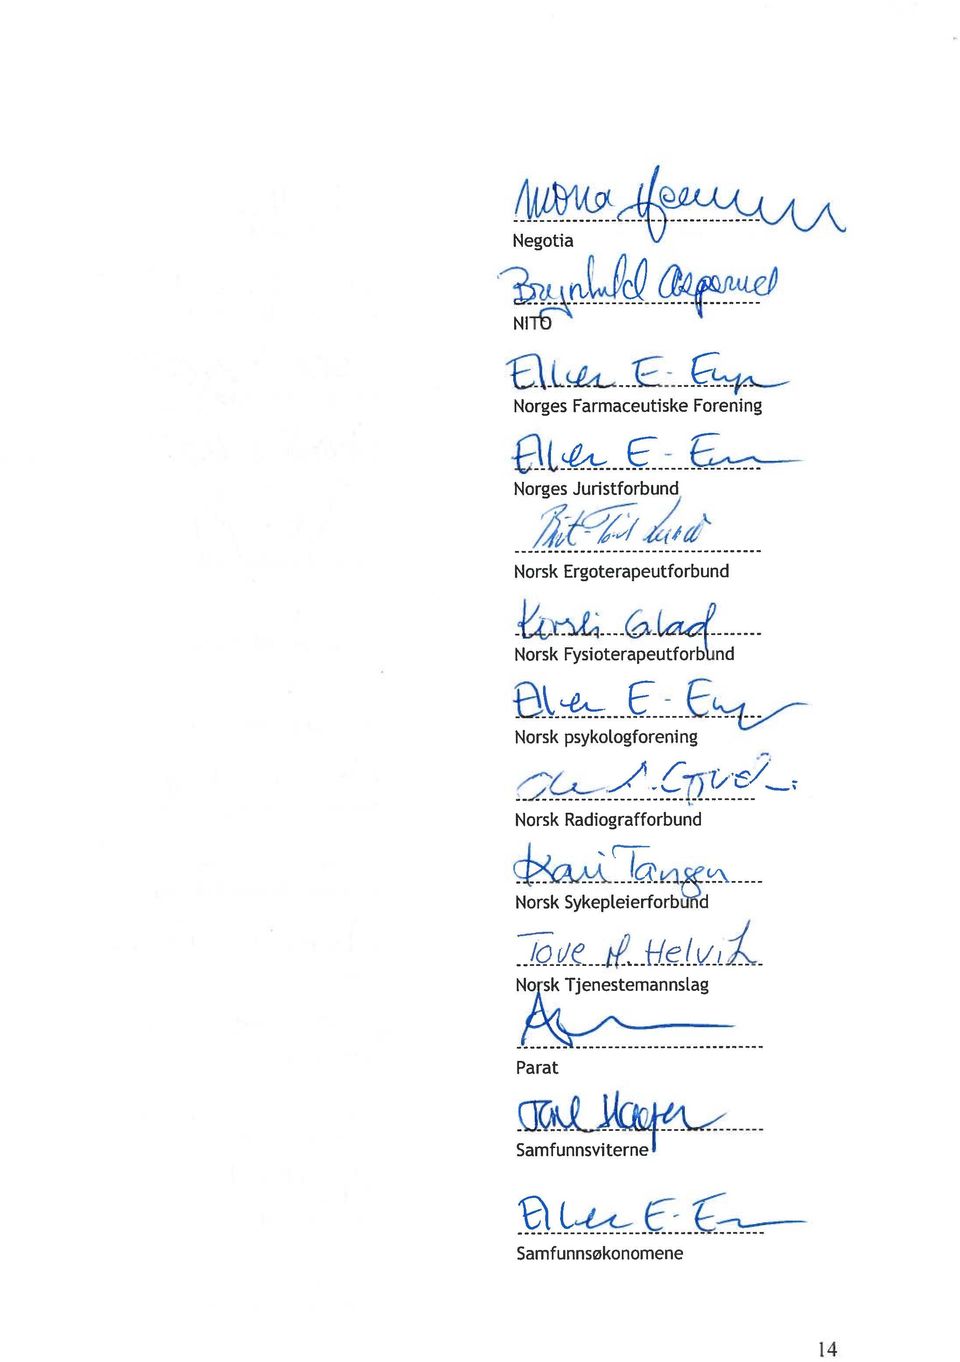 Mona
Negotia
Brynhild Asperud
NITO
Ellen E.
Norges Farmaceutiske Forening
Ellen E.
Norges Juristforbund
Brit-Toril Lund
Norsk Ergoterapeutforbund
Kirsti Glad
Norsk Fysioterapeutforbund
Ellen E.
Norsk psykologforening
Norsk Radiografforbund
Kari Tangen
Norsk Sykepleierforbund
Tove M. Helvik
Norsk Tjenestemannslag
Parat
Samfunnsviterne
Ellen E.
Samfunnsøkonomene
14